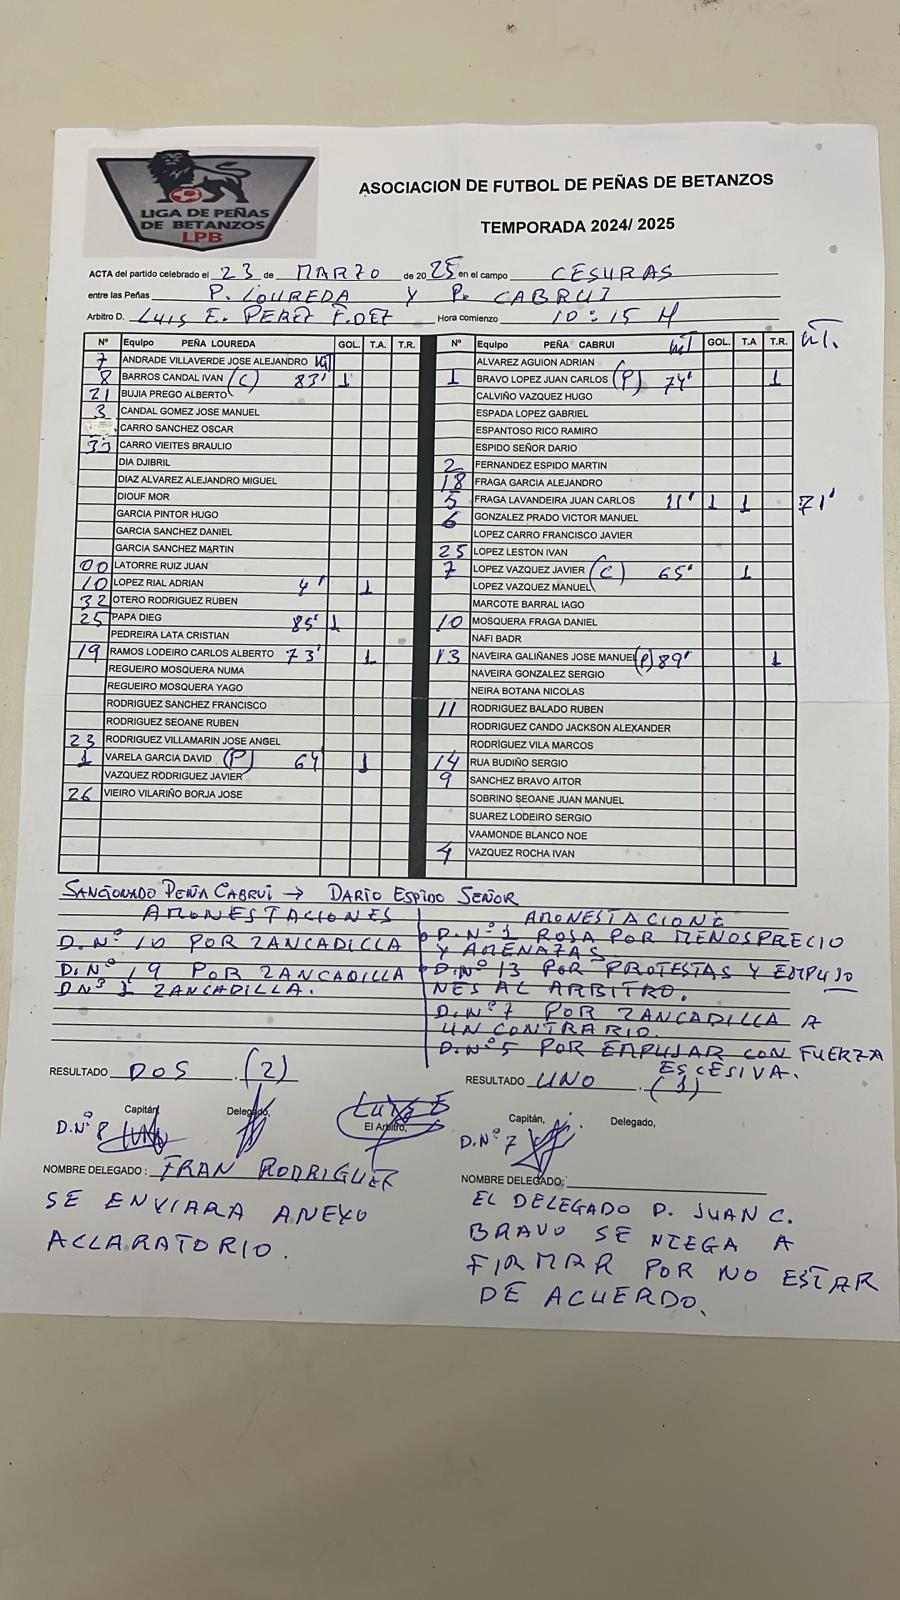 LIGA DE PEÑAS
DE BETANZOS
LPB
ASOCIACION DE FUTBOL DE PEÑAS DE BETANZOS
TEMPORADA 2024/ 2025
ACTA del partido celebrado el 23 de MARZO de 2025 en el campo CESURAS
entre las Peñas P. LOUREDA Y P. CABRUI
Arbitro D. LUIS E. PEREZ F.DEZ Hora comienzo 10:15 H
Nº Equipo PEÑA LOUREDA GOL. T.A. T.R.
7 ANDRADE VILLAVERDE JOSE ALEJANDRO
8 BARROS CANDAL IVAN (C) 83' 1
21 BUJIA PREGO ALBERTO
3 CANDAL GOMEZ JOSE MANUEL
CARRO SANCHEZ OSCAR
33 CARRO VIEITES BRAULIO
DIA DJIBRIL
DIAZ ALVAREZ ALEJANDRO MIGUEL
DIOUF MOR
GARCIA PINTOR HUGO
GARCIA SANCHEZ DANIEL
GARCIA SANCHEZ MARTIN
00 LATORRE RUIZ JUAN
10 LOPEZ RIAL ADRIAN 4' 1
32 OTERO RODRIGUEZ RUBEN
25 PAPA DIEG 85' 1
PEDREIRA LATA CRISTIAN
19 RAMOS LODEIRO CARLOS ALBERTO 73' 1
REGUEIRO MOSQUERA NUMA
REGUEIRO MOSQUERA YAGO
RODRIGUEZ SANCHEZ FRANCISCO
RODRIGUEZ SEOANE RUBEN
23 RODRIGUEZ VILLAMARIN JOSE ANGEL
1 VARELA GARCIA DAVID (P) 64' 1
VAZQUEZ RODRIGUEZ JAVIER
26 VIEIRO VILARIÑO BORJA JOSE
Nº Equipo PEÑA CABRUI MT GOL. T.A T.R. MT.
ALVAREZ AGUION ADRIAN
1 BRAVO LOPEZ JUAN CARLOS (P) 74' 1
CALVIÑO VAZQUEZ HUGO
ESPADA LOPEZ GABRIEL
ESPANTOSO RICO RAMIRO
ESPIDO SEÑOR DARIO
2 FERNANDEZ ESPIDO MARTIN
18 FRAGA GARCIA ALEJANDRO
5 FRAGA LAVANDEIRA JUAN CARLOS 11' 1 1 71'
6 GONZALEZ PRADO VICTOR MANUEL
LOPEZ CARRO FRANCISCO JAVIER
25 LOPEZ LESTON IVAN
7 LOPEZ VAZQUEZ JAVIER (C) 65' 1
LOPEZ VAZQUEZ MANUEL
MARCOTE BARRAL IAGO
10 MOSQUERA FRAGA DANIEL
NAFI BADR
13 NAVEIRA GALIÑANES JOSE MANUEL (P) 89' 1
NAVEIRA GONZALEZ SERGIO
NEIRA BOTANA NICOLAS
11 RODRIGUEZ BALADO RUBEN
RODRIGUEZ CANDO JACKSON ALEXANDER
RODRÍGUEZ VILA MARCOS
14 RUA BUDIÑO SERGIO
9 SANCHEZ BRAVO AITOR
SOBRINO SEOANE JUAN MANUEL
SUAREZ LODEIRO SERGIO
VAAMONDE BLANCO NOE
4 VAZQUEZ ROCHA IVAN
SANCIONADO PEÑA CABRUI → DARIO ESPIDO SEÑOR
AMONESTACIONES
D. Nº 10 POR ZANCADILLA
D. Nº 19 POR ZANCADILLA
D Nº 1 ZANCADILLA.
AMONESTACIONE
D. Nº 1 ROSA POR MENOSPRECIO
Y AMENAZAS
D. Nº 13 POR PROTESTAS Y EMPUJO
NES AL ARBITRO.
D. Nº 7 POR ZANCADILLA A
UN CONTRARIO.
D. Nº 5 POR EMPUJAR CON FUERZA
ESCESIVA.
RESULTADO DOS (2)
RESULTADO UNO (1)
Capitán, Delegado, El Arbitro,
LUIS E
D. Nº 8
Capitán, Delegado,
D. Nº 7
NOMBRE DELEGADO: FRAN RODRIGUEZ
NOMBRE DELEGADO:
SE ENVIARA ANEXO
ACLARATORIO.
EL DELEGADO D. JUAN C.
BRAVO SE NIEGA A
FIRMAR POR NO ESTAR
DE ACUERDO.